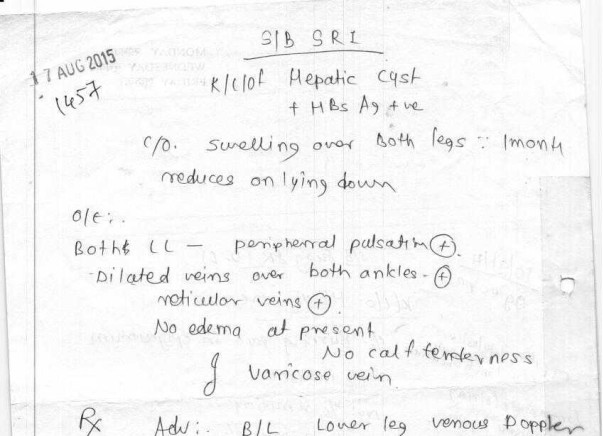 S/B SRI
17 AUG 2015
1457
K/C/Of Hepatic Cyst
+ HBs Ag +ve
C/O. swelling over Both legs ∵ 1month
reduces on lying down
O/E:.
Both LL - peripherral pulsatin (+).
- Dilated veins over both ankles - (+)
reticular veins (+).
No edema at present
No calf tenderness
varicose vein
Rx Adv:. B/L Lower leg venous Doppler